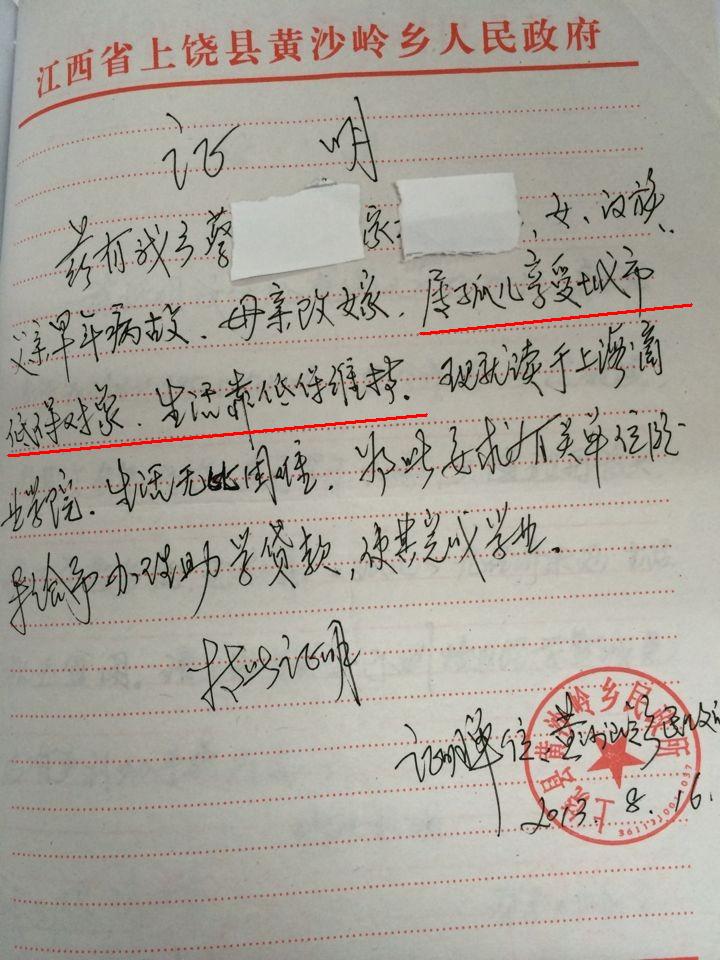 江西省上饶县黄沙岭乡人民政府
证 明
兹有我乡蔡 家 , 女、汉族、
父亲早年病故、母亲改嫁、属孤儿享受城市
低保对象、生活靠低保维持。现就读于上海商
业学院、生活无比困难、为此要求有关单位
给予办理助学贷款,使其完成学业。
特此证明
证明单位:黄沙岭乡民政所
2013.8.16
上饶县黄沙岭乡民政所